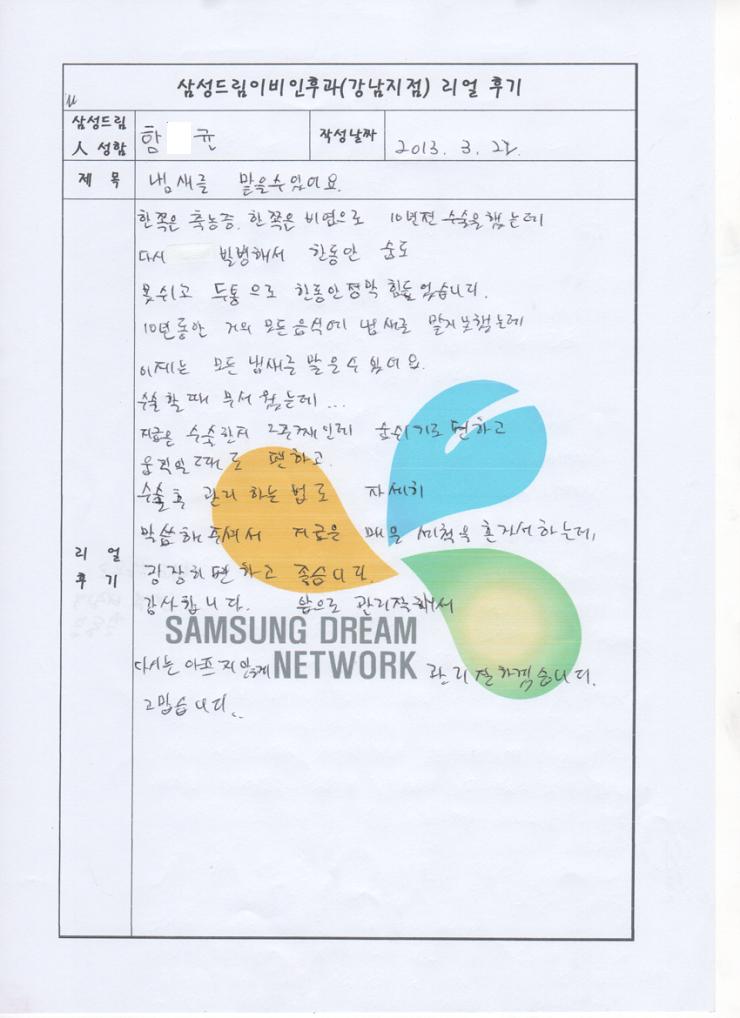 삼성드림이비인후과(강남지점) 리얼 후기
삼성드림
人 성함
함 균
작성날짜
2013. 3. 2
제 목
냄새를 맡을수있어요.
리 얼
후 기
한쪽은 축농증. 한쪽은 비염으로 10년전 수술을 했는데
다시 발병해서 한동안 숨도
못쉬고 두통으로 한동안 정막 힘들었습니다.
10년동안 거의 모든음식에 냄새를 맡지못했는데
이제는 모든 냄새를 맡을수 있어요.
수술할때 무서웠는데...
지금은 수술한지 2주째인데 숨쉬기도 편하고
움직일때도 편하고.
수술후 관리하는 법도 자세히
말씀해주셔서 지금은 매일 세척을 혼자서하는데,
굉장히 편하고 좋습니다.
감사합니다. 앞으로 관리잘해서
SAMSUNG DREAM
NETWORK
다시는 아프지않게 관리잘하겠습니다.
고맙습니다..